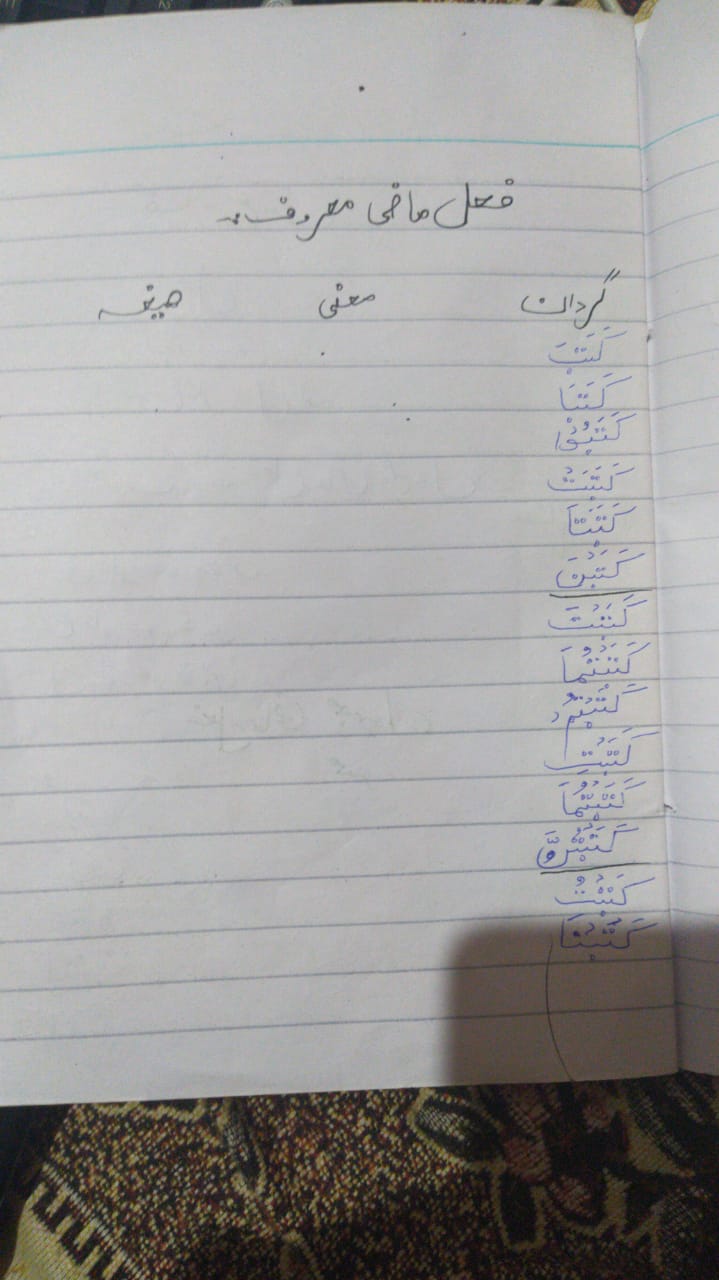 فعل ماضی معروف:
گردان معنی صیغہ
کَتَبَ
کَتَبَا
کَتَبُوْا
کَتَبَتْ
کَتَبَتَا
کَتَبْنَ
کَتَبْتَ
کَتَبْتُمَا
کَتَبْتُمْ
کَتَبْتِ
کَتَبْتُمَا
کَتَبْتُنَّ
کَتَبْتُ
کَتَبْنَا